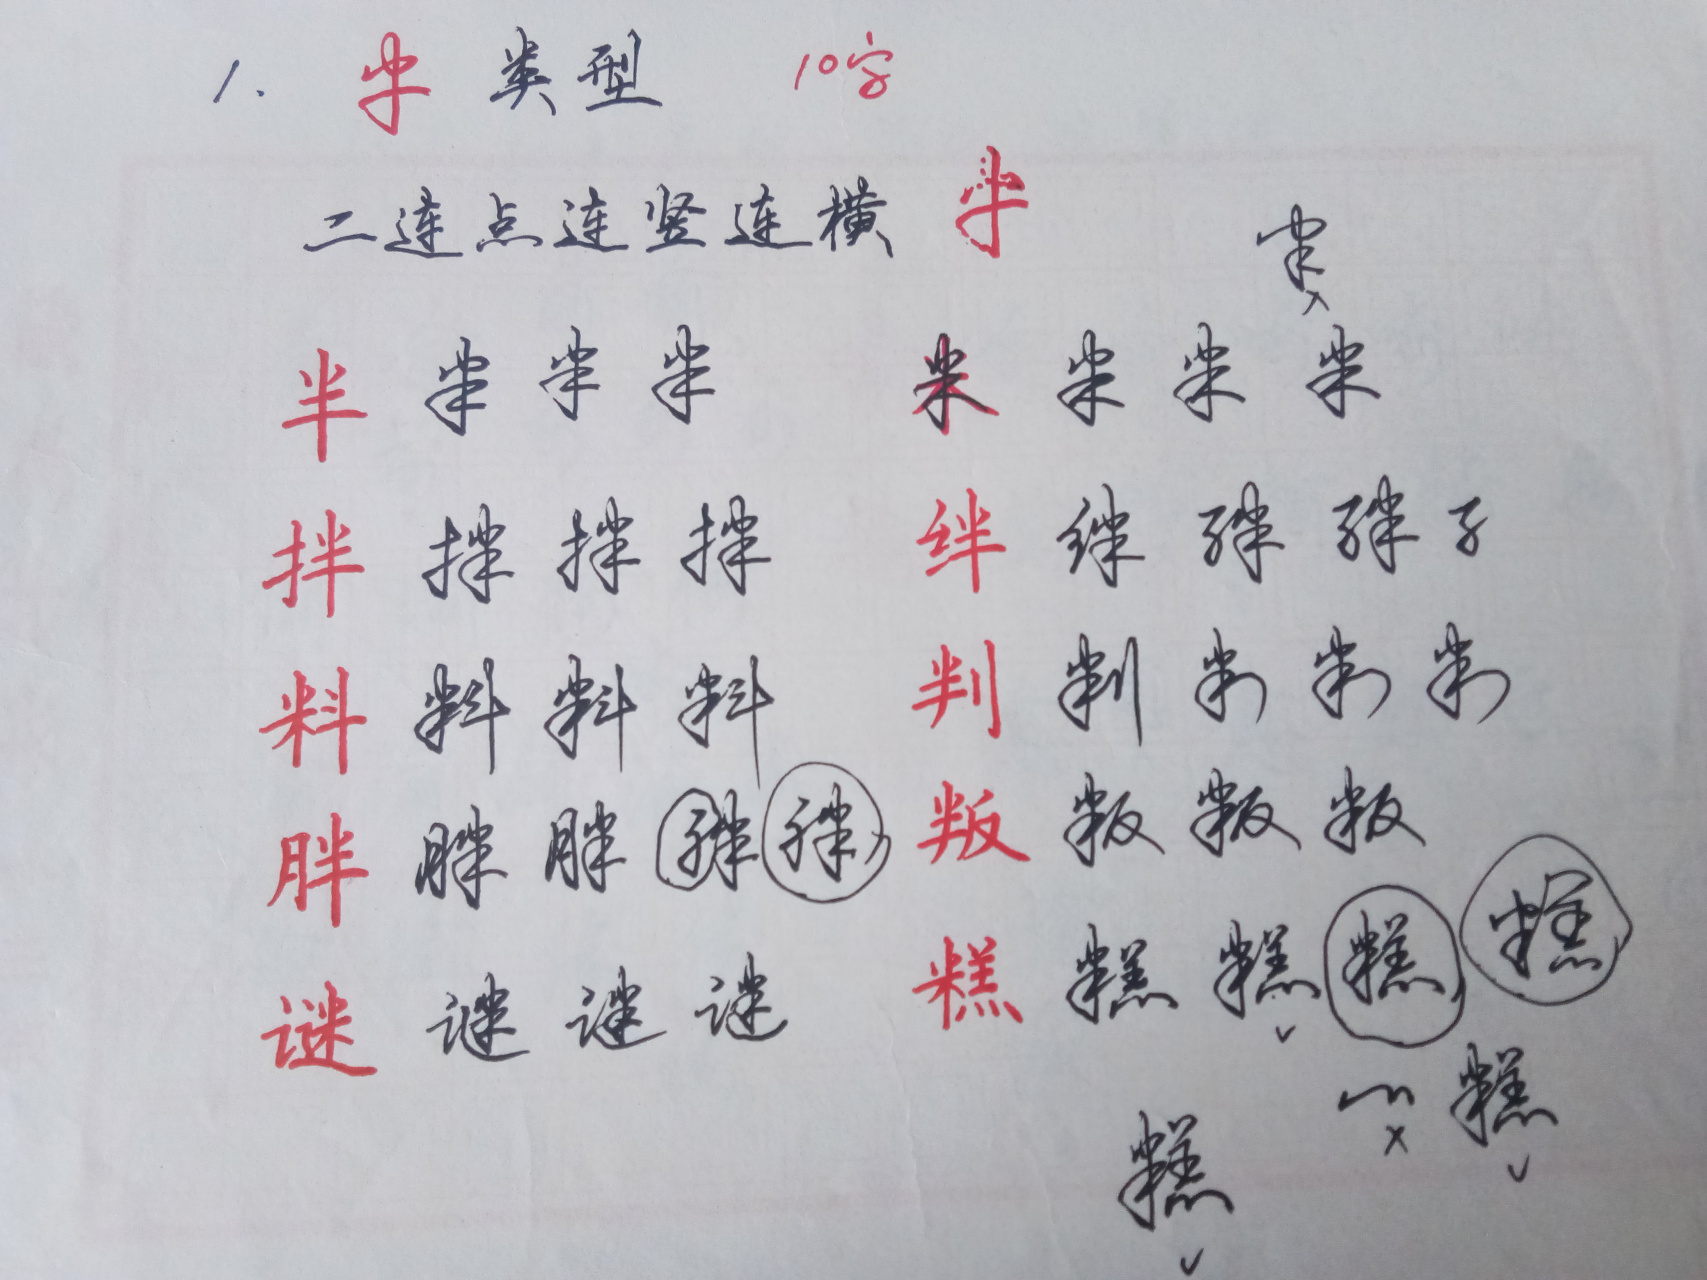 1. 半类型 10字
二连点连竖连横 半
半
半 半 半 半 米 米 米 米
拌 拌 拌 拌 绊 绊 绊 绊 纟
料 料 料 料 判 判 判 判 判
胖 胖 胖 胖 胖 叛 叛 叛 叛
谜 谜 谜 谜 糕 糕 糕 糕 糕
糕 糕